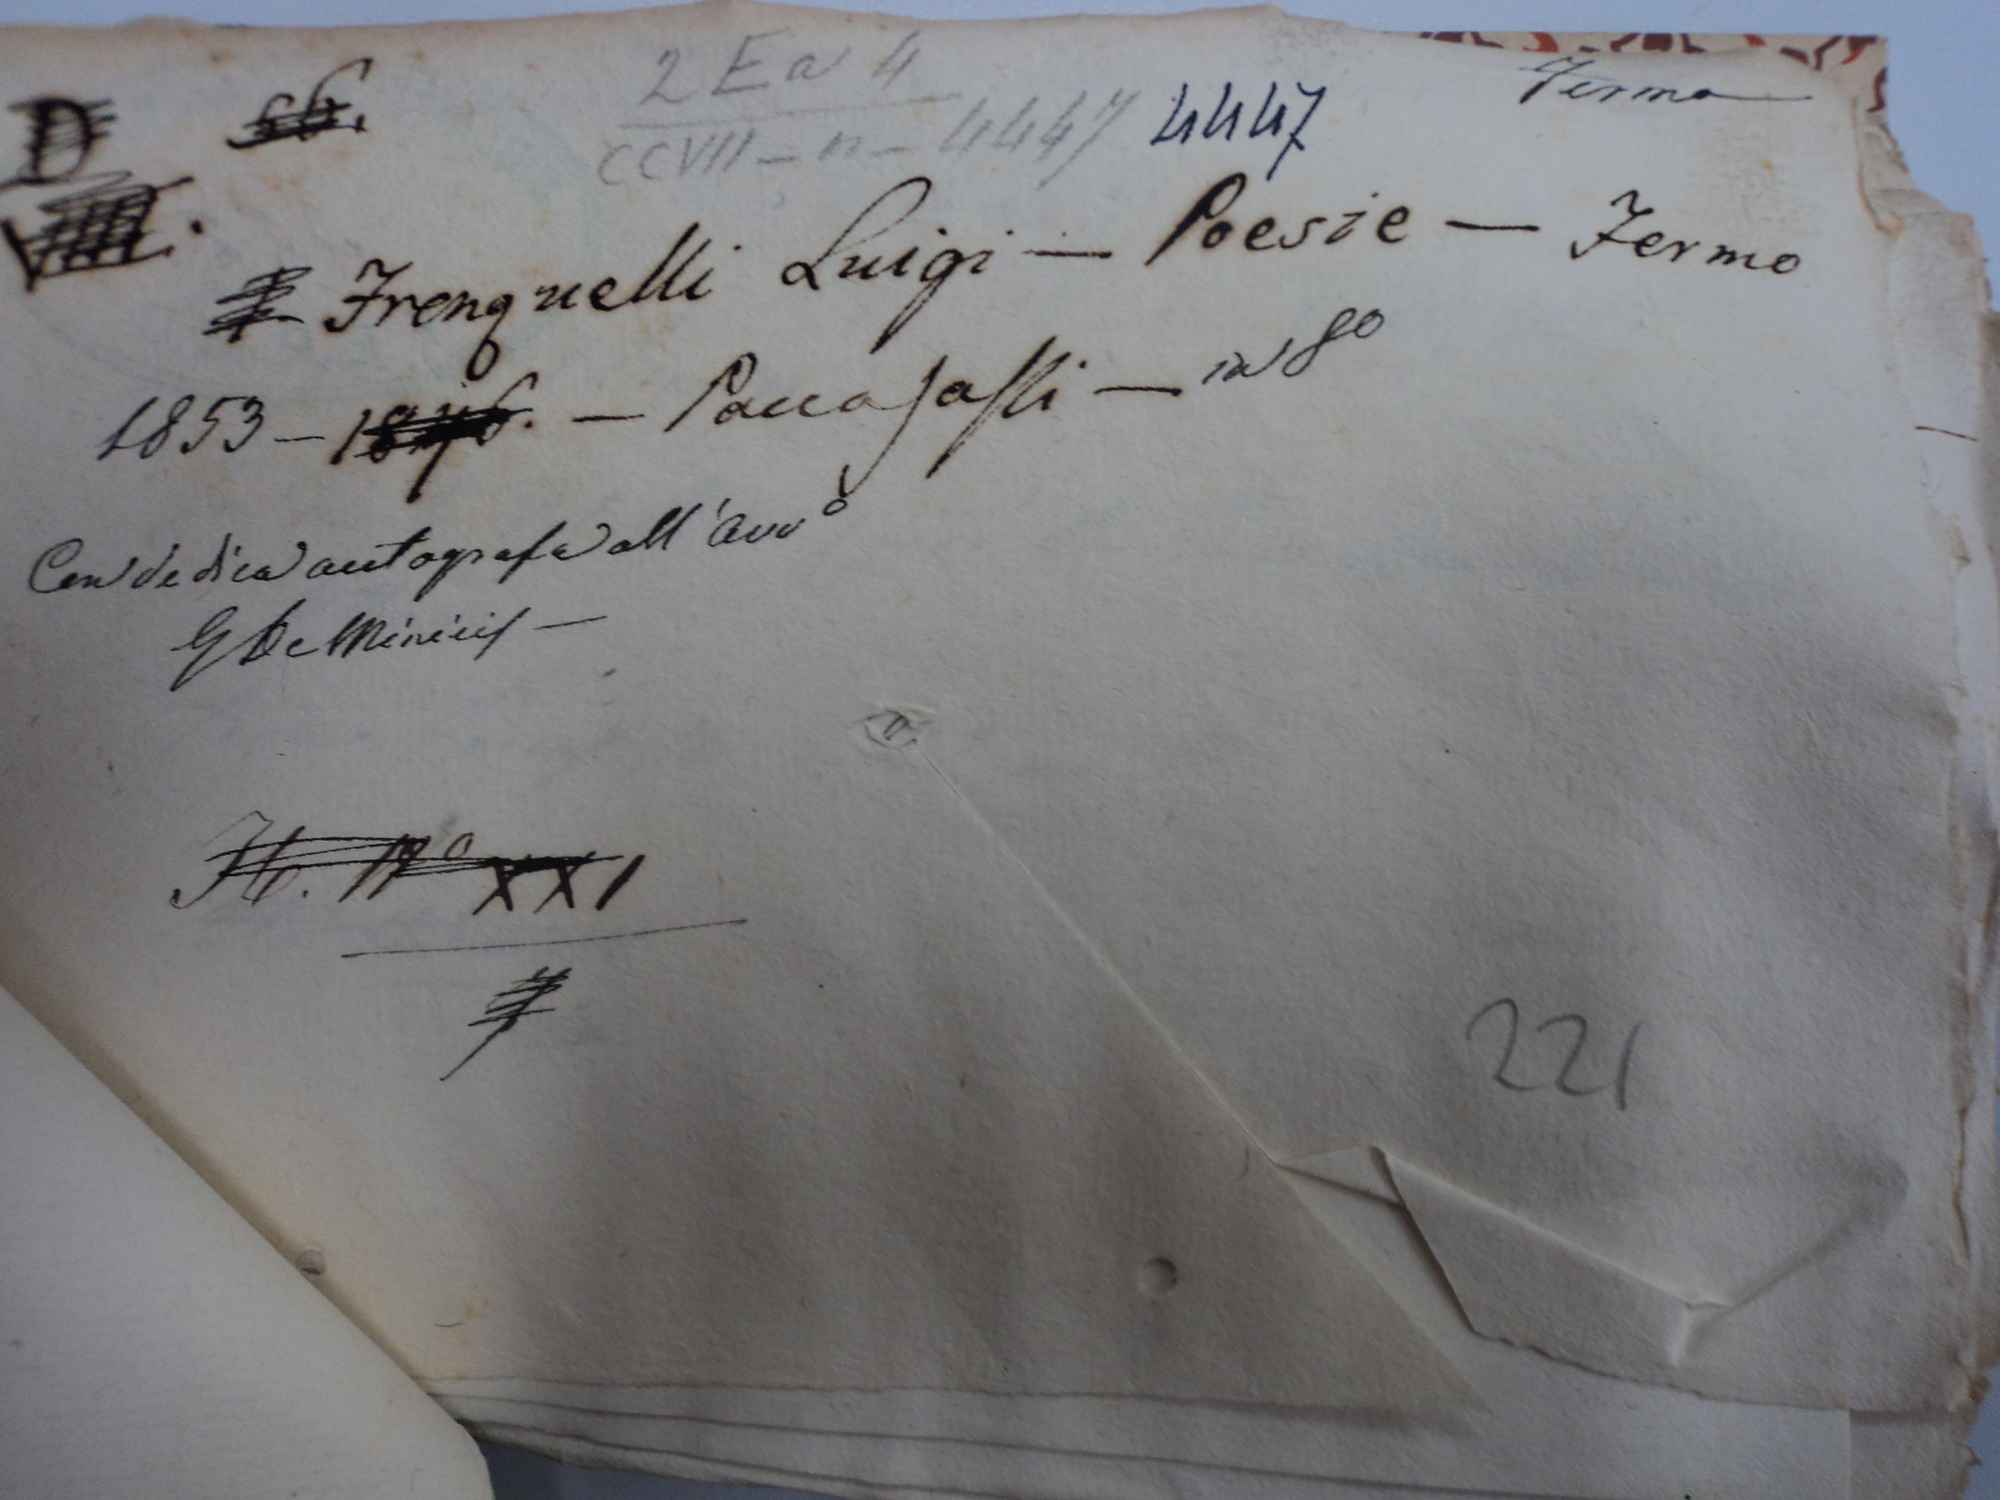 D 56. 2 Ea 4 Fermo
CCVII - n - 4447 4447
VIII.
Frenquelli Luigi — Poesie — Fermo
1853 — 1876. — Paccasassi — in 8º
Con dedica autografa all'Avvº
G De Minicis —
Nº XXI
221